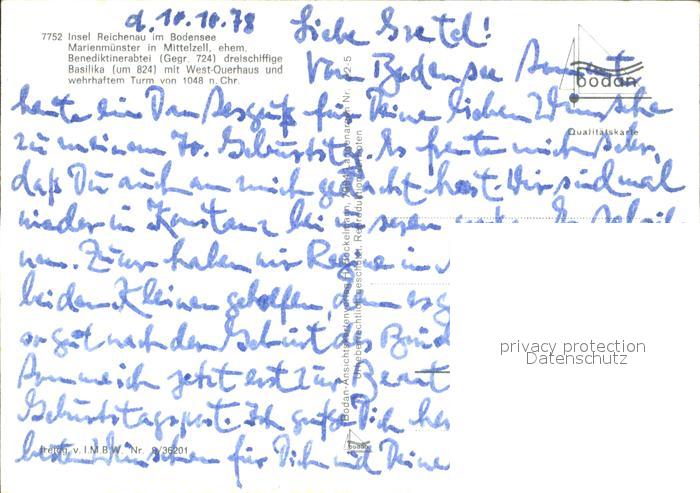 d. 10.10.78
Liebe Gretel!
7752 Insel Reichenau im Bodensee
Marienmünster in Mittelzell, ehem.
Benediktinerabtei (Gegr. 724) dreischiffige
Basilika (um 824) mit West-Querhaus und
wehrhaftem Turm von 1048 n. Chr.
Vom Bodensee kommt
bodan
Qualitätskarte
heute ein Dankesgruß für Deine lieben Wünsche
zu meinem 70. Geburtstg. Es freute mich sehr,
daß Du auch an mich gedacht hast. Wir sind mal
wieder in Konstanz bei
Zuvor haben wir in
beiden Kleinen geholfen, es g
so gut nach der Geburt des Brüd
komme ich jetzt erst zur Beant
Geburtstagspost. Ich grüße Dich
besten Wünschen für Dich und Deine
Bodan-Ansichtskartenverlag
Urheberrechtlich geschützt, Reproduktion verboten
bodan
Freigg. v. I.M.B.W. Nr.
privacy protection
Datenschutz